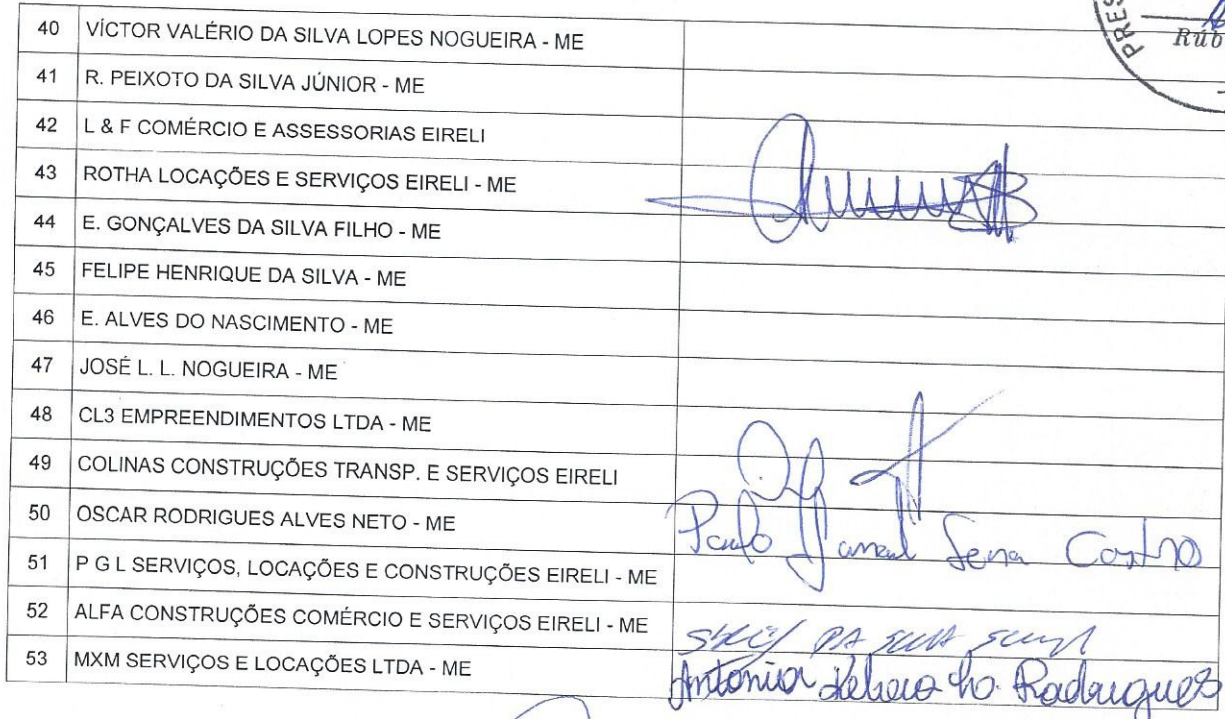 PRES
Rúb
40 VÍCTOR VALÉRIO DA SILVA LOPES NOGUEIRA - ME
41 R. PEIXOTO DA SILVA JÚNIOR - ME
42 L & F COMÉRCIO E ASSESSORIAS EIRELI
43 ROTHA LOCAÇÕES E SERVIÇOS EIRELI - ME
44 E. GONÇALVES DA SILVA FILHO - ME
45 FELIPE HENRIQUE DA SILVA - ME
46 E. ALVES DO NASCIMENTO - ME
47 JOSÉ L. L. NOGUEIRA - ME
48 CL3 EMPREENDIMENTOS LTDA - ME
49 COLINAS CONSTRUÇÕES TRANSP. E SERVIÇOS EIRELI
50 OSCAR RODRIGUES ALVES NETO - ME Paulo Sena Castro
51 P G L SERVIÇOS, LOCAÇÕES E CONSTRUÇÕES EIRELI - ME
52 ALFA CONSTRUÇÕES COMÉRCIO E SERVIÇOS EIRELI - ME DA
53 MXM SERVIÇOS E LOCAÇÕES LTDA - ME Antonia Rodrigues